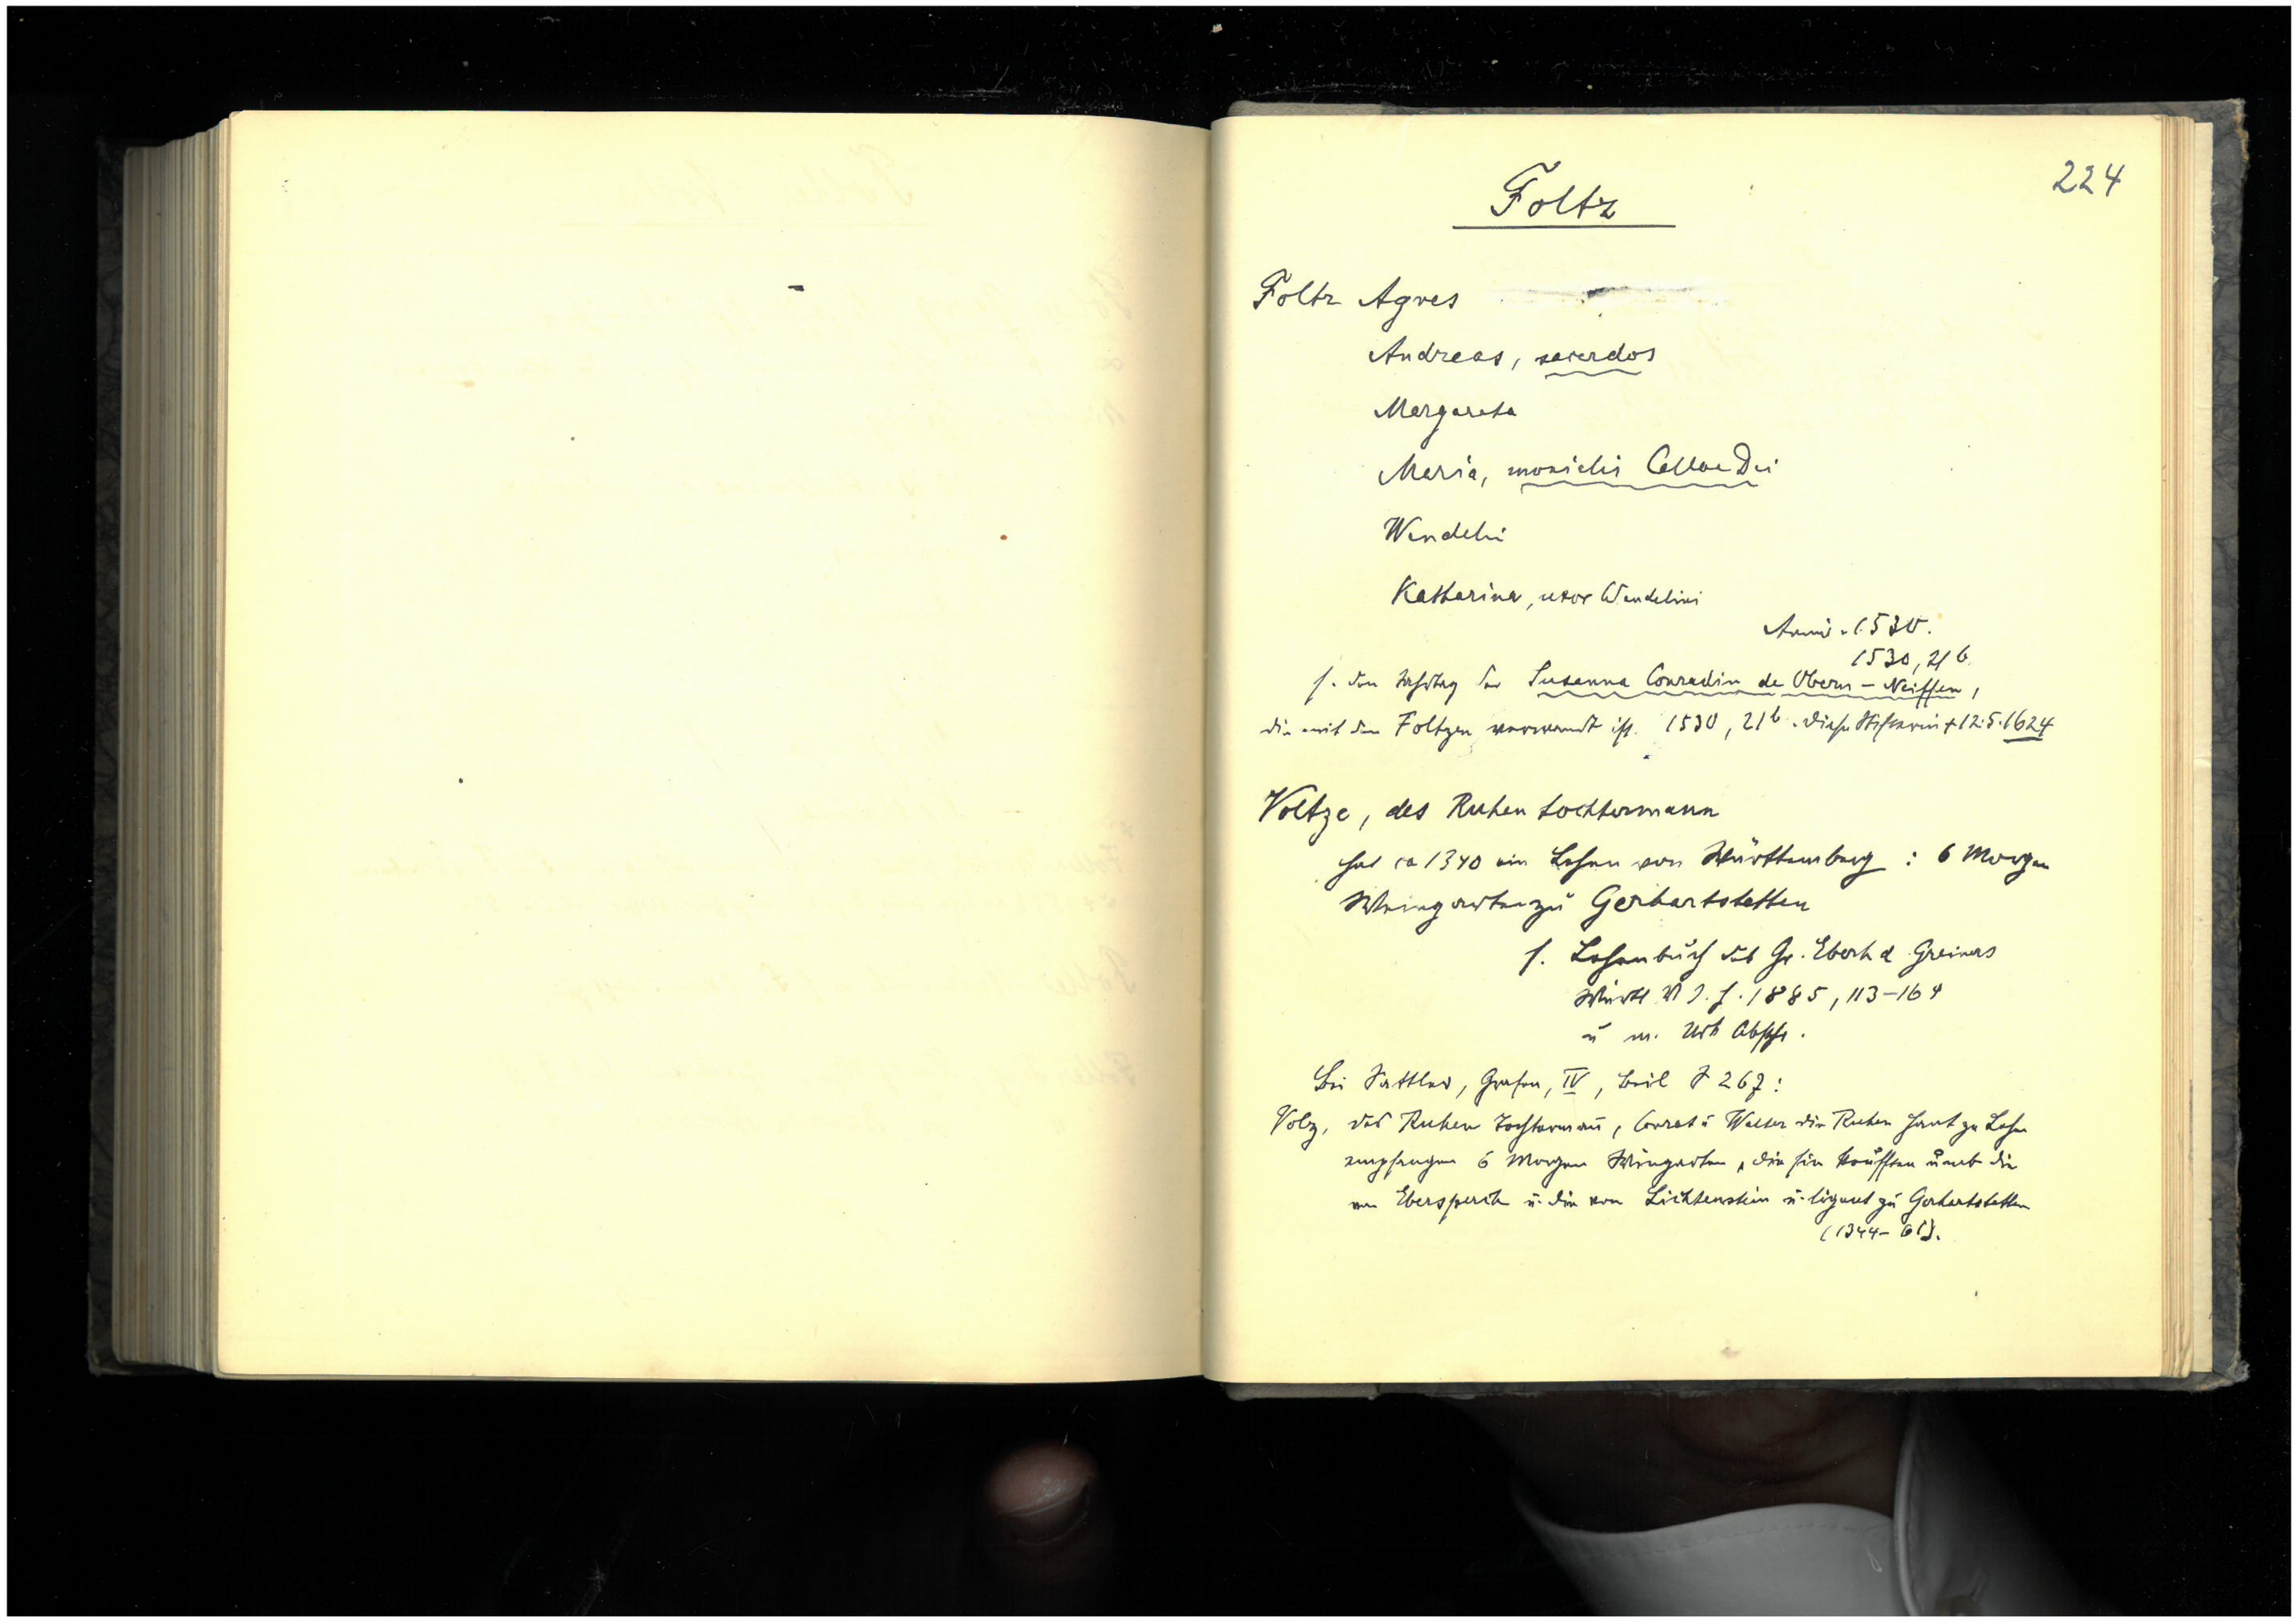 224
Foltz
Foltz Agnes
Andreas, sacerdos
Margareta
Maria, monialis Cellae Dei
Wendelin
Katharina, uxor Wendelini
Anniv. 1530.
1530, 21b
s. den Jahrtag der Susanna Conradin de Obern-Neiffen,
die mit den Foltzen verwandt ist. 1530, 21b. Diese Stifterin + 12.5.1624
Voltze, des Ruhen tochtermann
hat ca 1340 ein Lehen von Württemberg : 6 Morgen
Weingarten zu Gerhartstetten
s. Lehenbuch des Gr. Eberh d Greiners
Württ V J. h. 1885, 113-164
u m. Urk Abschr.
Bei Sattler, Grafen, IV, Beil S 267:
Volz, des Ruhen Tochterman, Conrat u Walter die Ruhen hant zu Lehn
empfangen 6 Morgen Wingarten, die sin koufften umb die
von Ebersperch u. die von Lichtenstein u. ligent zu Gerhartstetten
(1344-61).